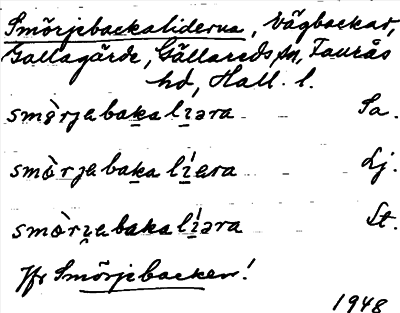 Smörjebackaliderna, Vägbackar,
Gallagärde, Gällareds sn, Faurås
hd, Hall. l.
smòrjabakalíara Sa.
smòrjabakalíara Lj.
smòrjabakalíara St.
Jfr Smörjebacken!
1948